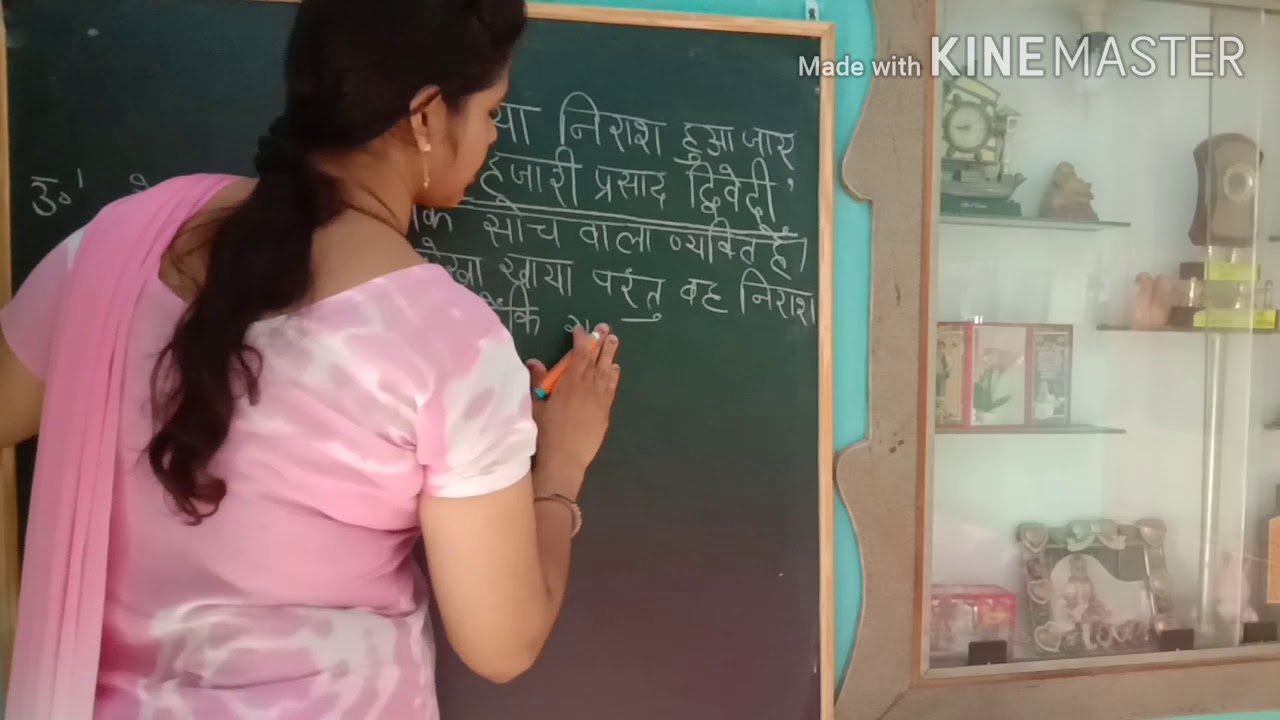 Made with KINEMASTER
या निराश हुआ जाए
उ॰ हजारी प्रसाद द्विवेदी
सोच वाला व्यक्ति हैं।
खाया परंतु वह निराश